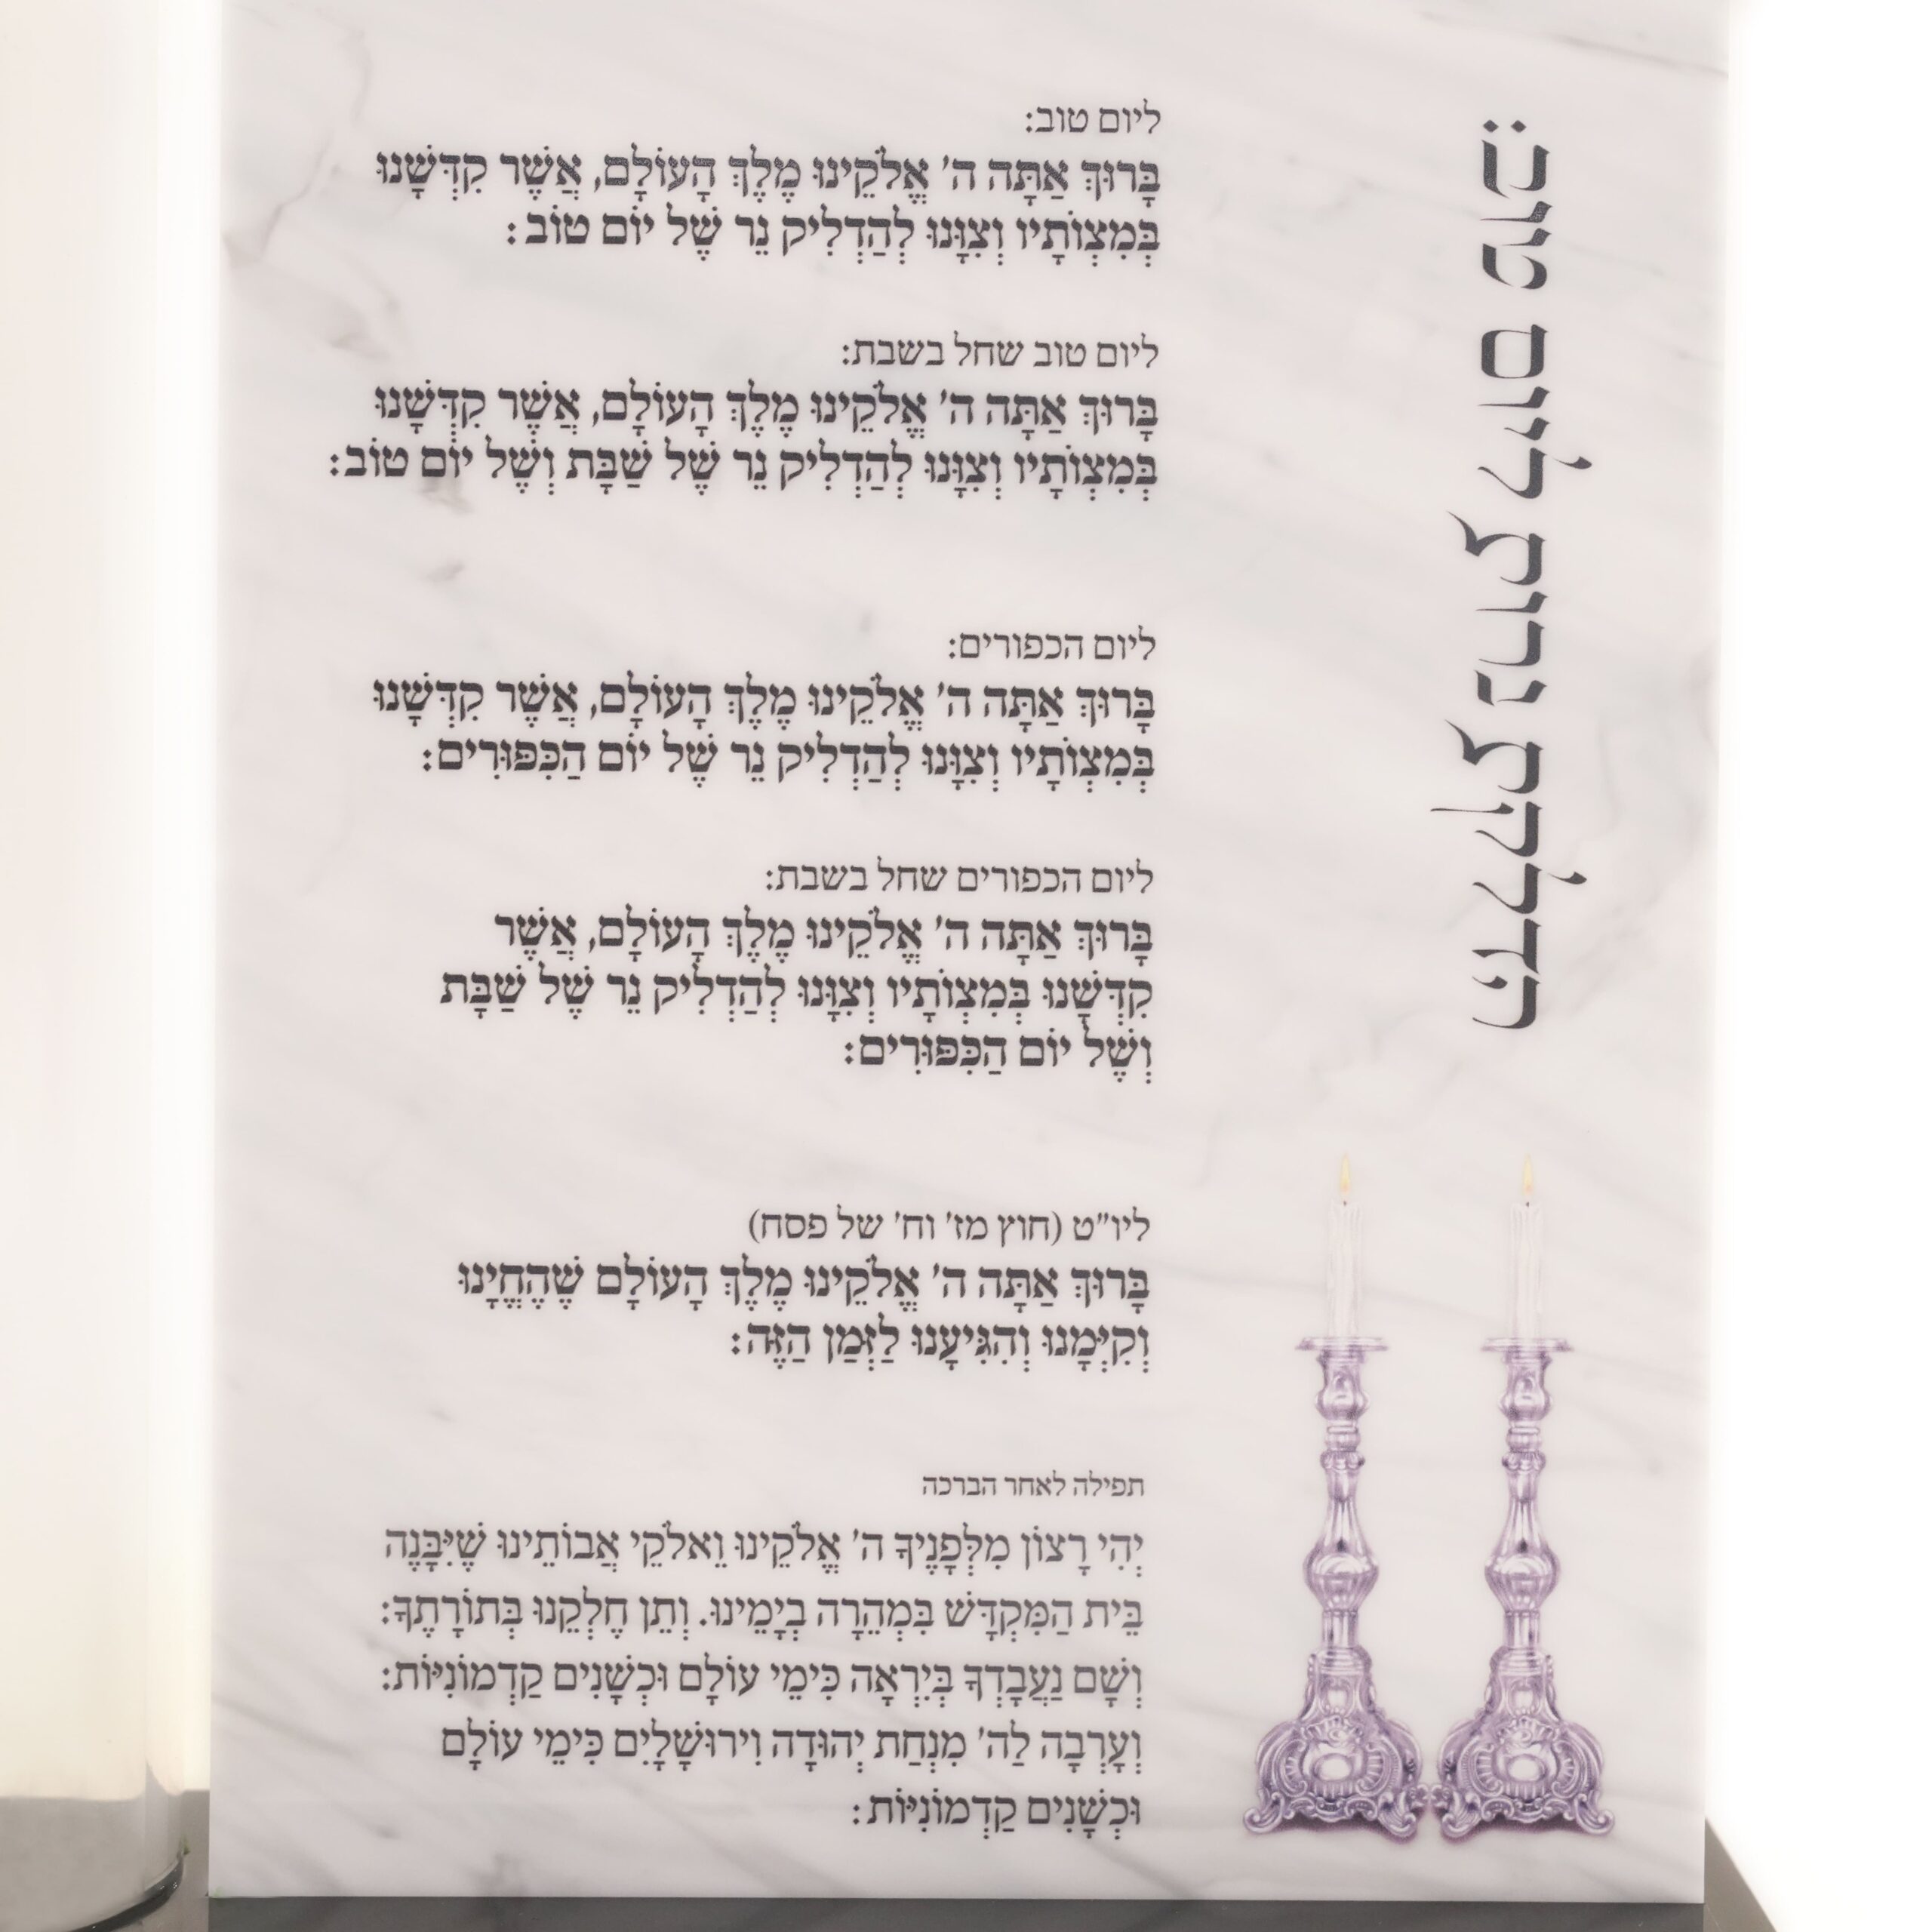 הדלקת נרות ליום טוב:
ליום טוב:
בָּרוּךְ אַתָּה ה' אֱלֹקֵינוּ מֶלֶךְ הָעוֹלָם, אֲשֶׁר קִדְּשָׁנוּ
בְּמִצְוֹתָיו וְצִוָּנוּ לְהַדְלִיק נֵר שֶׁל יוֹם טוֹב:
ליום טוב שחל בשבת:
בָּרוּךְ אַתָּה ה' אֱלֹקֵינוּ מֶלֶךְ הָעוֹלָם, אֲשֶׁר קִדְּשָׁנוּ
בְּמִצְוֹתָיו וְצִוָּנוּ לְהַדְלִיק נֵר שֶׁל שַׁבָּת וְשֶׁל יוֹם טוֹב:
ליום הכפורים:
בָּרוּךְ אַתָּה ה' אֱלֹקֵינוּ מֶלֶךְ הָעוֹלָם, אֲשֶׁר קִדְּשָׁנוּ
בְּמִצְוֹתָיו וְצִוָּנוּ לְהַדְלִיק נֵר שֶׁל יוֹם הַכִּפּוּרִים:
ליום הכפורים שחל בשבת:
בָּרוּךְ אַתָּה ה' אֱלֹקֵינוּ מֶלֶךְ הָעוֹלָם, אֲשֶׁר
קִדְּשָׁנוּ בְּמִצְוֹתָיו וְצִוָּנוּ לְהַדְלִיק נֵר שֶׁל שַׁבָּת
וְשֶׁל יוֹם הַכִּפּוּרִים:
ליו"ט (חוץ מז' וח' של פסח)
בָּרוּךְ אַתָּה ה' אֱלֹקֵינוּ מֶלֶךְ הָעוֹלָם שֶׁהֶחֱיָנוּ
וְקִיְּמָנוּ וְהִגִּיעָנוּ לַזְּמַן הַזֶּה:
תפילה לאחר הברכה
יְהִי רָצוֹן מִלְּפָנֶיךָ ה' אֱלֹקֵינוּ וֵאלֹקֵי אֲבוֹתֵינוּ שֶׁיִּבָּנֶה
בֵּית הַמִּקְדָּשׁ בִּמְהֵרָה בְיָמֵינוּ. וְתֵן חֶלְקֵנוּ בְּתוֹרָתֶךָ:
וְשָׁם נַעֲבָדְךָ בְּיִרְאָה כִּימֵי עוֹלָם וּכְשָׁנִים קַדְמוֹנִיּוֹת:
וְעָרְבָה לַה' מִנְחַת יְהוּדָה וִירוּשָׁלָיִם כִּימֵי עוֹלָם
וּכְשָׁנִים קַדְמוֹנִיּוֹת: